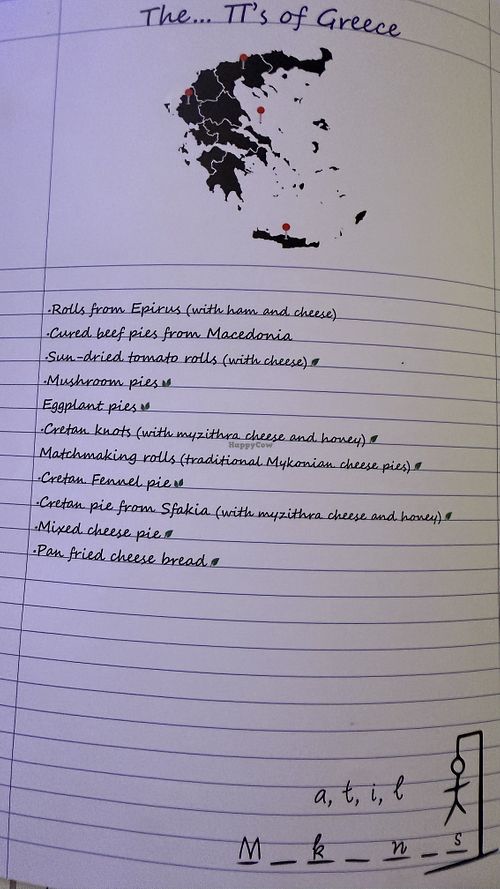 The... Π's of Greece
·Rolls from Epirus (with ham and cheese)
·Cured beef pies from Macedonia
·Sun-dried tomato rolls (with cheese)
·Mushroom pies
Eggplant pies
·Cretan knots (with myzithra cheese and honey)
HappyCow
Matchmaking rolls (traditional Mykonian cheese pies)
·Cretan Fennel pie
·Cretan pie from Sfakia (with myzithra cheese and honey)
·Mixed cheese pie
·Pan fried cheese bread
a, t, i, l
M _ k _ n _ s